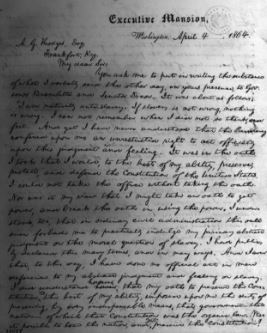 Executive Mansion,
Washington, April 4, 1864.
A. G. Hodges, Esq
Frankfort, Ky.
My dear Sir:
You ask me to put in writing the substance
of what I verbally said the other day, in your presence, to Gov.
Bramlette and Senator Dixon. It was about as follows:
"I am naturally anti-slavery. If slavery is not wrong, nothing
is wrong. I can not remember when I did not so think, and
feel. And yet I have never understood that the Presidency
conferred upon me an unrestricted right to act officially
upon this judgment and feeling. It was in the oath
I took that I would, to the best of my ability, preserve,
protect, and defend the Constitution of the United States.
I could not take the office without taking the oath.
Nor was it my view that I might take an oath to get
power, and break the oath in using the power. I under-
stood, too, that in ordinary civil administration this oath
even forbade me to practically indulge my primary abstract
judgment on the moral question of slavery. I had publicly
declared this many times, and in many ways. And I aver
that, to this day, I have done no official act in mere
deference to my abstract judgment and feeling on slavery.
I did understand however, that my oath to preserve the Con-
stitution to the best of my ability, imposed upon me the duty of
preserving, by every indispensable means, that government—
that nation—of which that Constitution was the organic law. Was
it possible to lose the nation, and yet preserve the Constitution?